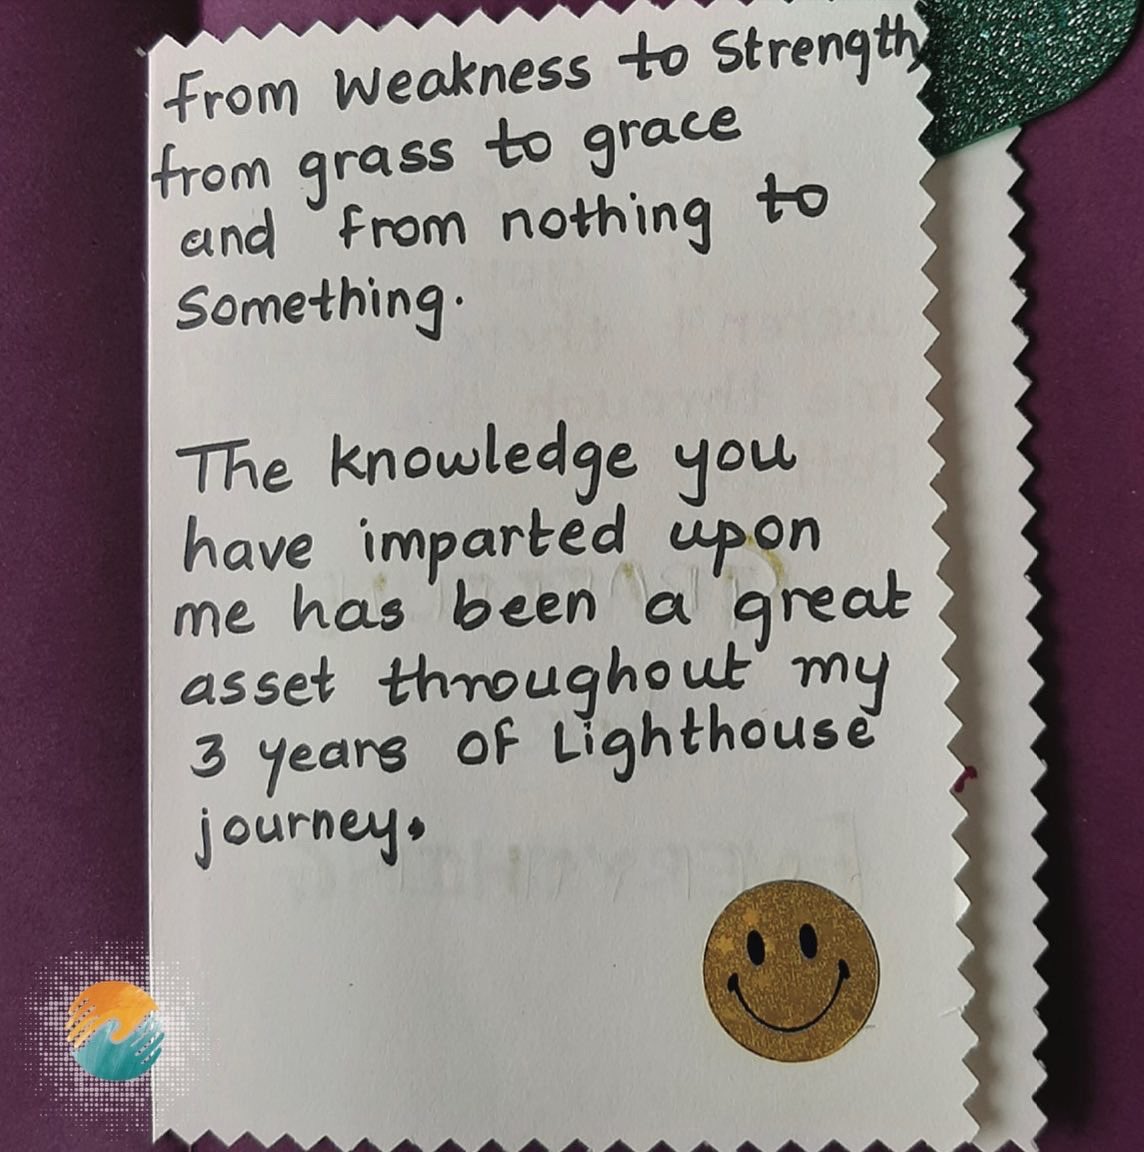 from Weakness to Strength,
from grass to grace
and from nothing to
Something.
The knowledge you
have imparted upon
me has been a great
asset throughout my
3 years of Lighthouse
journey.